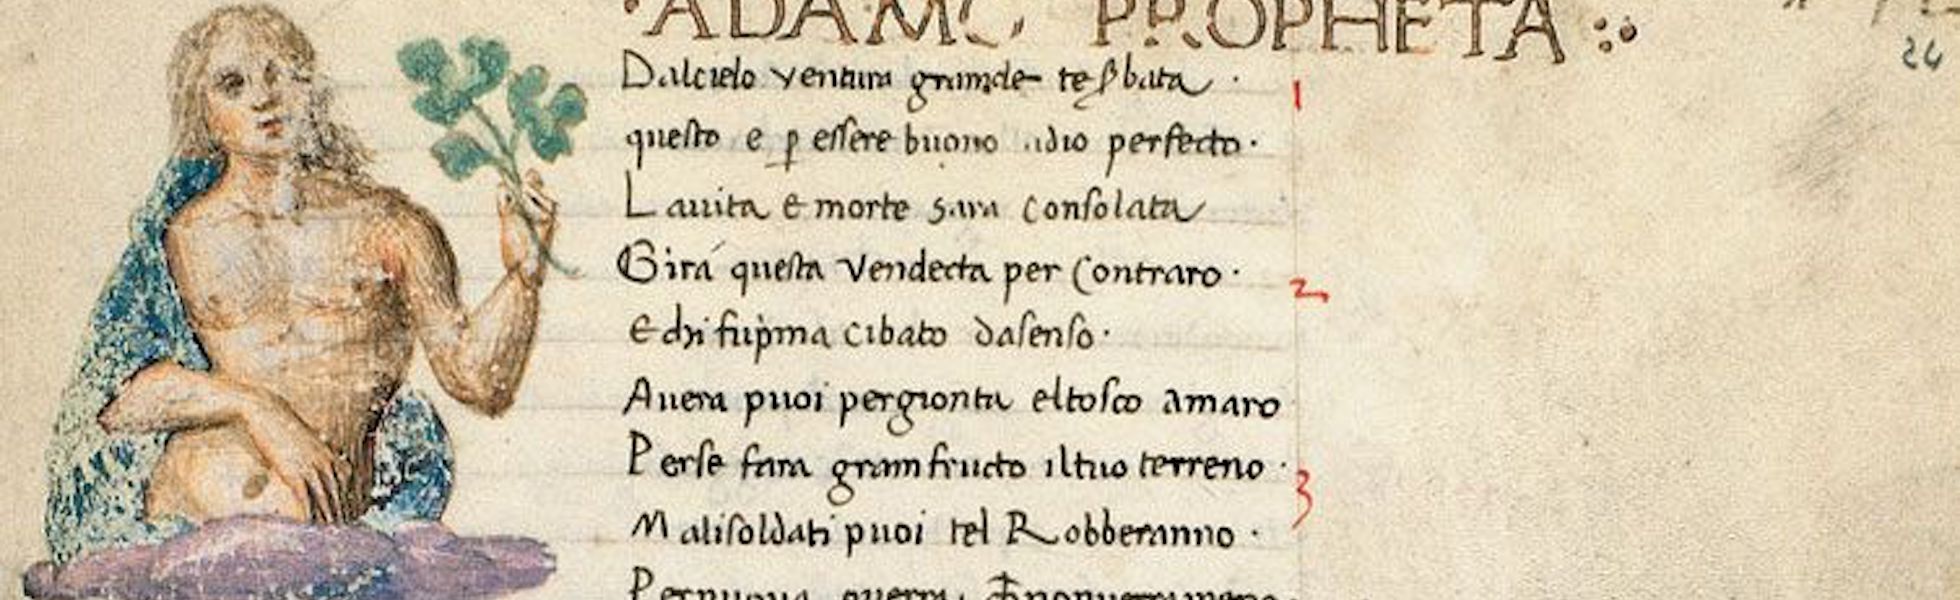 ·ADAMO PROPHETA:·
Dalcielo ventura grande te ſbata ·
queſto e ꝑ eſſere buono adio perfecto·
Lauita e morte sara Conſolata
Girá queſta Vendecta per Contraro·
E chi fu pͥma cibato daſenſo·
Auera puoi pergionta eltoſco amaro
Perſe fara gram fructo iltuo terreno·
Maliſoldati puoi tel Robberanno·
Pernuoua guerra
1
2
3
24